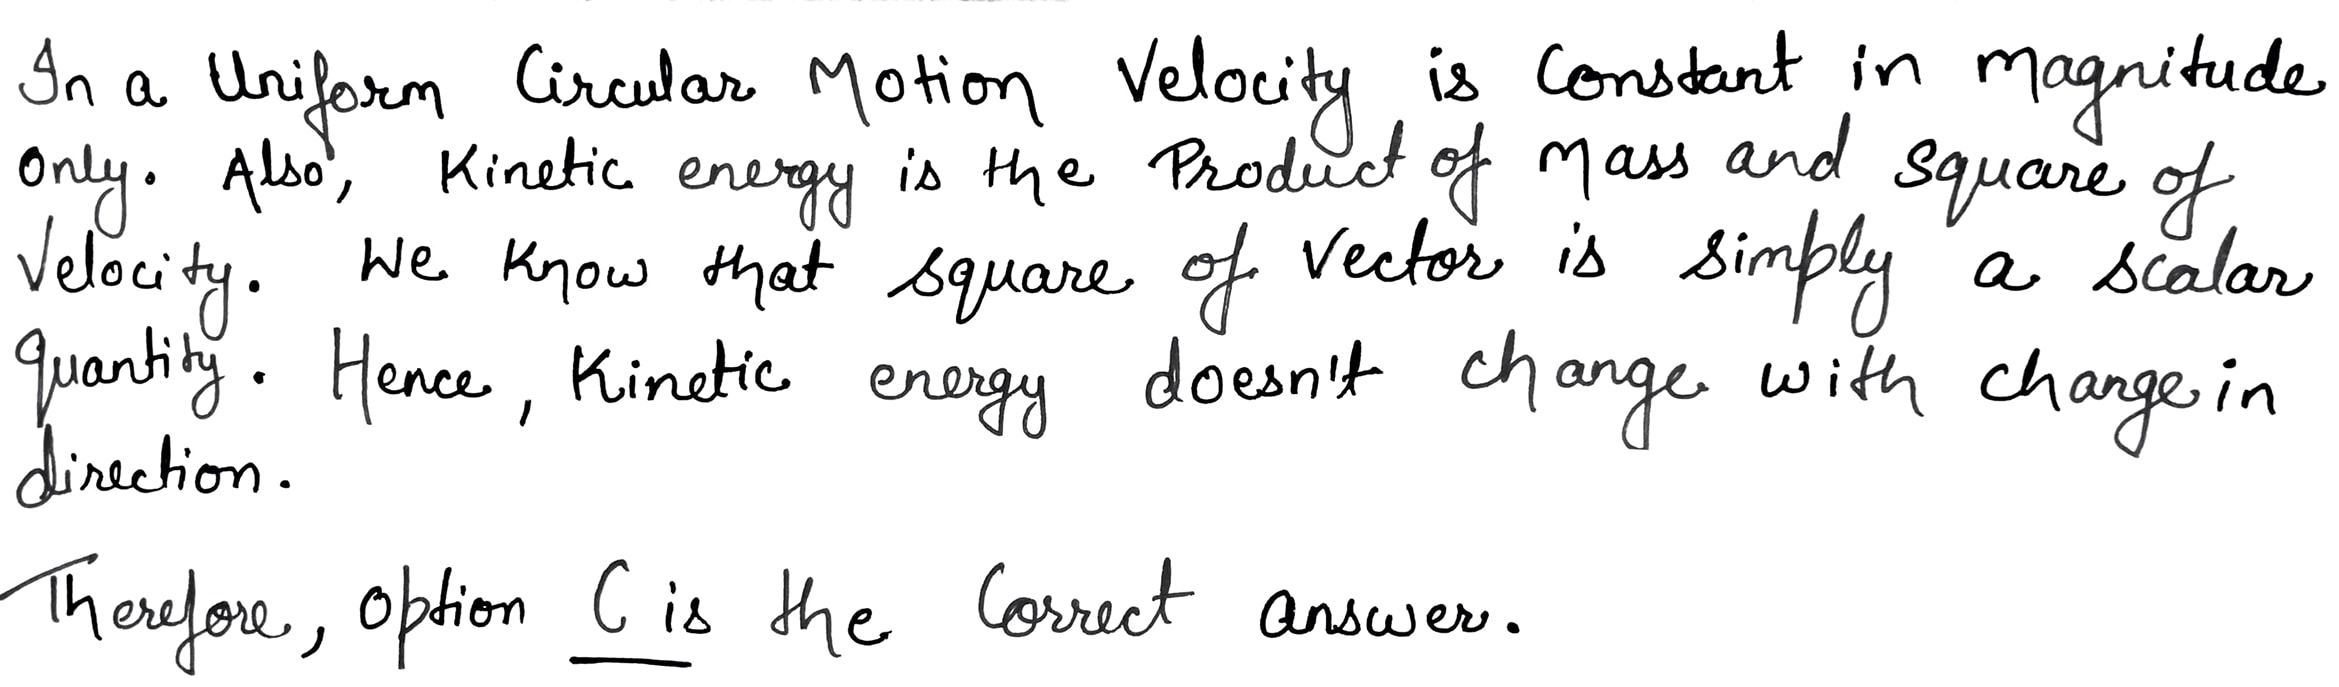 In a Uniform Circular Motion Velocity is Constant in magnitude
only. Also, Kinetic energy is the Product of mass and square of
Velocity. We know that square of vector is simply a scalar
quantity. Hence, Kinetic energy doesn't change with change in
direction.
Therefore, option C is the Correct answer.